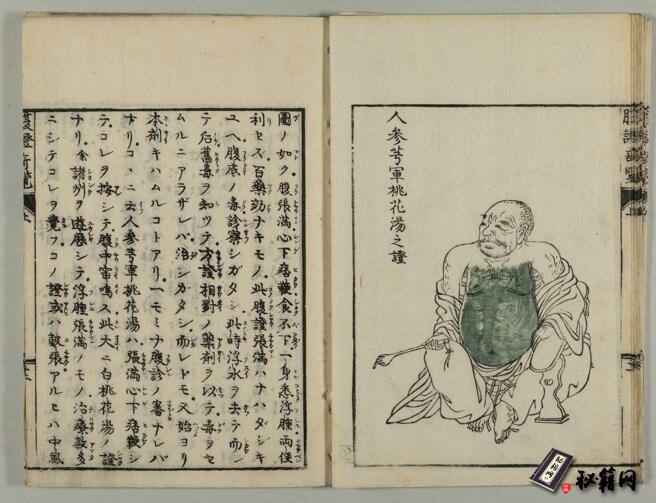 人参芎軍桃花湯之證
圖ノ如ク腹張滿心下痞鞕食不下一身悉浮腫両便
利セズ百藥効ナキモノ此腹證張滿ハナハダシキ
ユヘ腹底ノ毒診察シガタシ此時浮水ヲ去テ而ン
テ后舊毒ヲ知ツテ方證相對ノ藥剤ヲ以テ毒ヲセ
ムルニアラザレバ治シガタシ而レトモ又始ヨリ
本剤キハムルコトアリ一モミナ腹診ノ審ナレバ
ナリコヽニ云人参芎軍桃花湯ハ張滿心下痞鞕シ
テコレヲ按シテ腹中雷鳴ス此大ニ白桃花湯ノ證
ナリ余諸州ヲ遊歴シテ浮腫張滿ノモノ治療数多
ニシテコレヲ覺フコノ證或ハ皷張アルヒハ中風
腹證奇覽
上
秘籍网